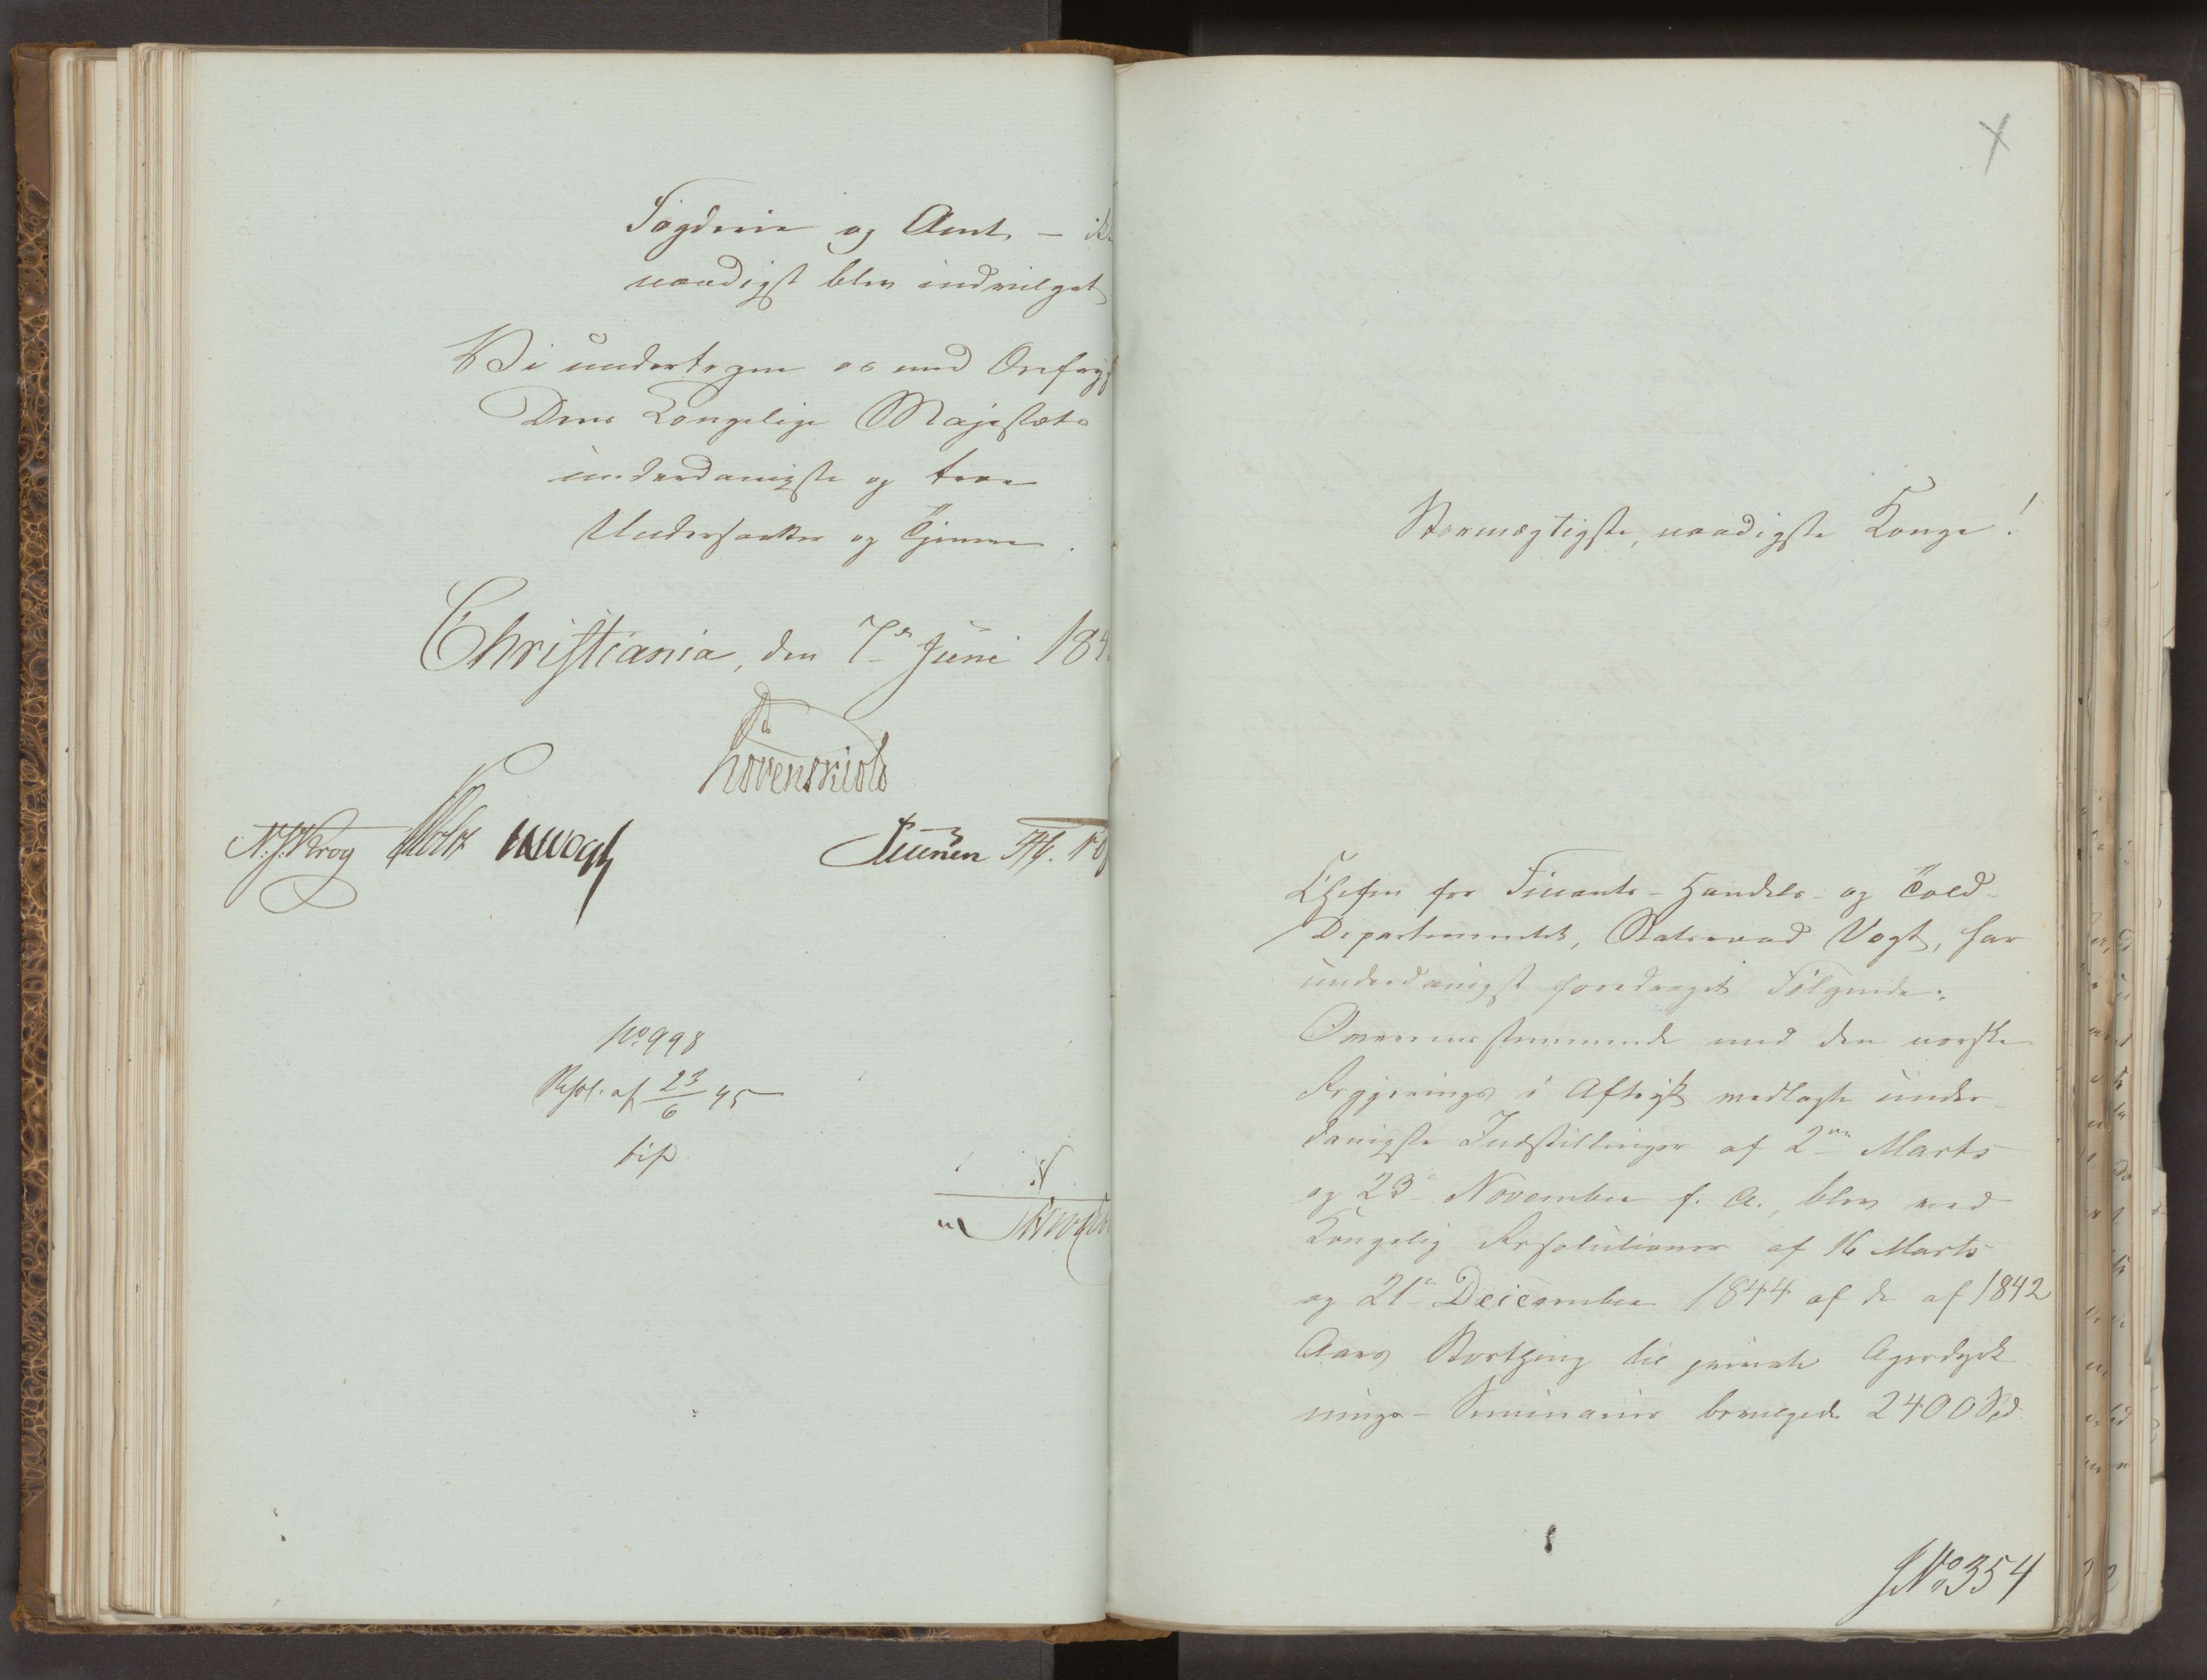 Fogderie og Amt, – ik
naadigst blev indvilget
Vi undertegne os med Ærefrygt
Deres Kongelige Majestæts
underdanigste og troe
Undersaatter og Tjenere.
Christiania, den 7de Juni 184
Løvenskiold
N.J. Krog Holst JHVogt
No 998
Resol. af 23/6 45
Stormægtigste, naadigste Konge!
Chefen for Finants- Handels- og Told-
Departementet, Statsraad Vogt, har
underdanigst foredraget Følgende:
Overensstemmende med den norske
Regjerings i Aftryk vedlagte under-
danigste Indstillinger af 2den Marts
og 23de November f. A., blev ved
Kongelig Resolutioner af 16 Marts
og 21de December 1844 af de af 1842
Aars Storthing til private Agerdyrk
nings-Seminarier bevilgede 2400 Spd.
JNo 354